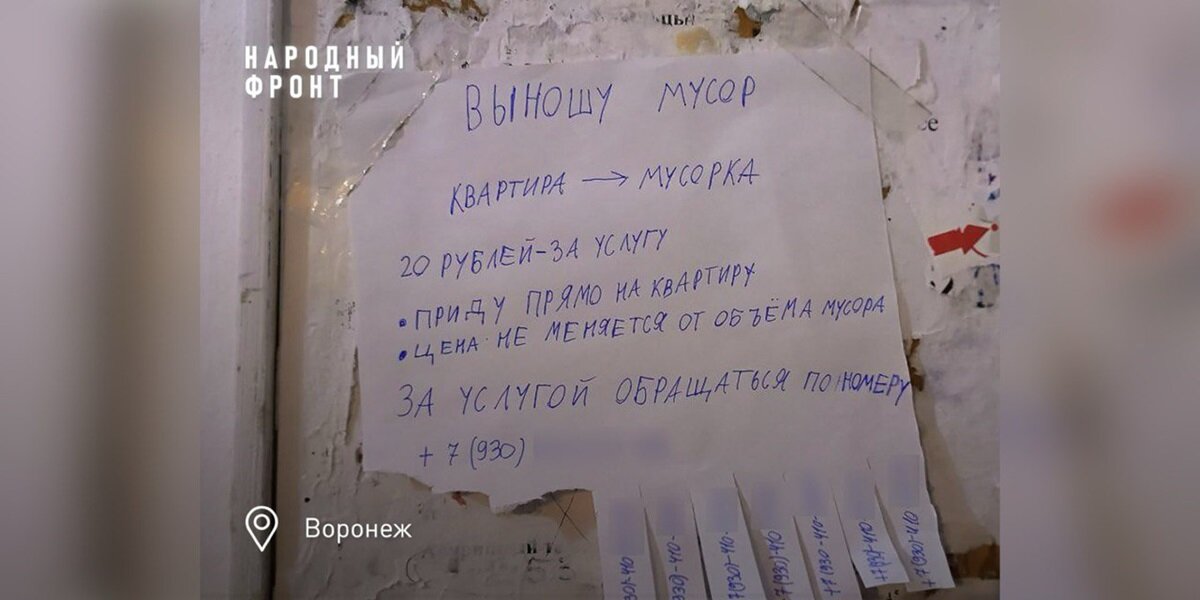 НАРОДНЫЙ
ФРОНТ
ВЫНОШУ МУСОР
КВАРТИРА → МУСОРКА
20 РУБЛЕЙ-ЗА УСЛУГУ
• ПРИДУ ПРЯМО НА КВАРТИРУ
• ЦЕНА НЕ МЕНЯЕТСЯ ОТ ОБЪЁМА МУСОРА
ЗА УСЛУГОЙ ОБРАЩАТЬСЯ ПО НОМЕРУ
+ 7 (930)
Воронеж
+7(930)-410